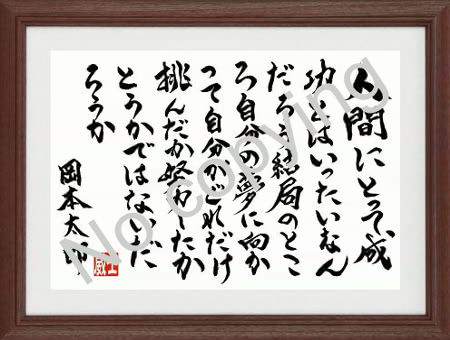 人間にとって成
功とはいったいなん
だろう結局のとこ
ろ自分の夢に向か
って自分がどれだけ
挑んだか努力したか
どうかではないだ
ろうか
岡本太郎
No copying